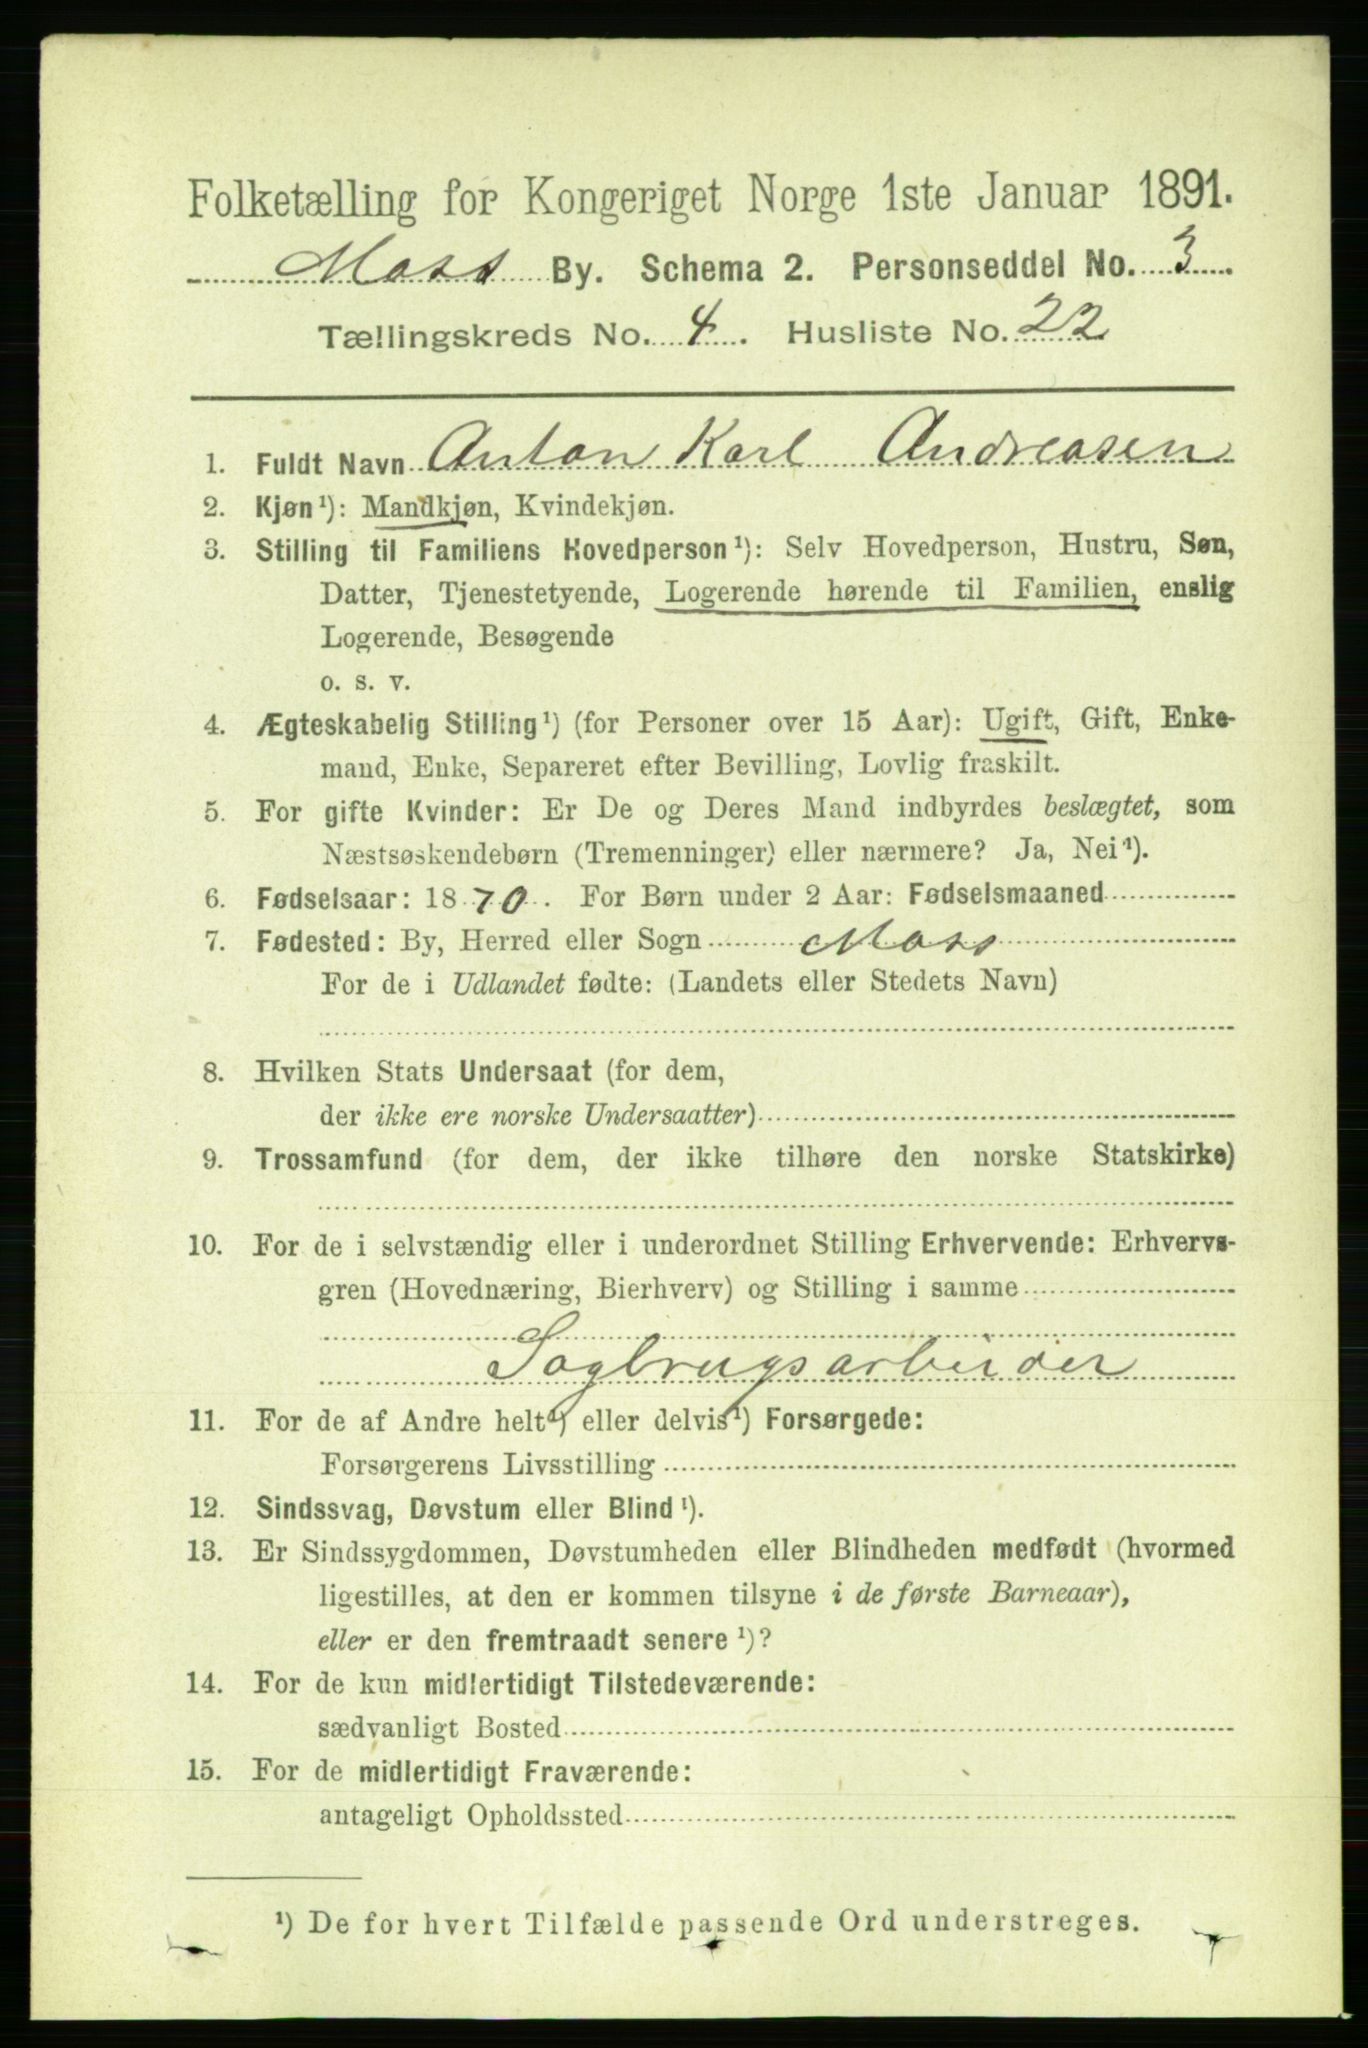 Folketælling for Kongeriget Norge 1ste Januar 1891.
Moss By. Schema 2. Personseddel No. 3
Tællingskreds No. 4. Husliste No. 22
1. Fuldt Navn Anton Karl Andreasen
2. Kjøn¹): Mandkjøn, Kvindekjøn.
3. Stilling til Familiens Hovedperson¹): Selv Hovedperson, Hustru, Søn,
Datter, Tjenestetyende, Logerende hørende til Familien, enslig
Logerende, Besøgende
o. s. v.
4. Ægteskabelig Stilling¹) (for Personer over 15 Aar): Ugift, Gift, Enke-
mand, Enke, Separeret efter Bevilling, Lovlig fraskilt.
5. For gifte Kvinder: Er De og Deres Mand indbyrdes beslægtet, som
Næstsøskendebørn (Tremenninger) eller nærmere? Ja, Nei¹).
6. Fødselsaar: 1870. For Børn under 2 Aar: Fødselsmaaned
7. Fødested: By, Herred eller Sogn Moss
For de i Udlandet fødte: (Landets eller Stedets Navn)
8. Hvilken Stats Undersaat (for dem,
der ikke ere norske Undersaatter)
9. Trossamfund (for dem, der ikke tilhøre den norske Statskirke)
10. For de i selvstændig eller i underordnet Stilling Erhvervende: Erhvervs-
gren (Hovednæring, Bierhverv) og Stilling i samme
Sagbrugsarbeider
11. For de af Andre helt¹) eller delvis¹) Forsørgede:
Forsørgerens Livsstilling
12. Sindssvag, Døvstum eller Blind¹).
13. Er Sindssygdommen, Døvstumheden eller Blindheden medfødt (hvormed
ligestilles, at den er kommen tilsyne i de første Barneaar),
eller er den fremtraadt senere¹)?
14. For de kun midlertidigt Tilstedeværende:
sædvanligt Bosted
15. For de midlertidigt Fraværende:
antageligt Opholdssted
¹) De for hvert Tilfælde passende Ord understreges.